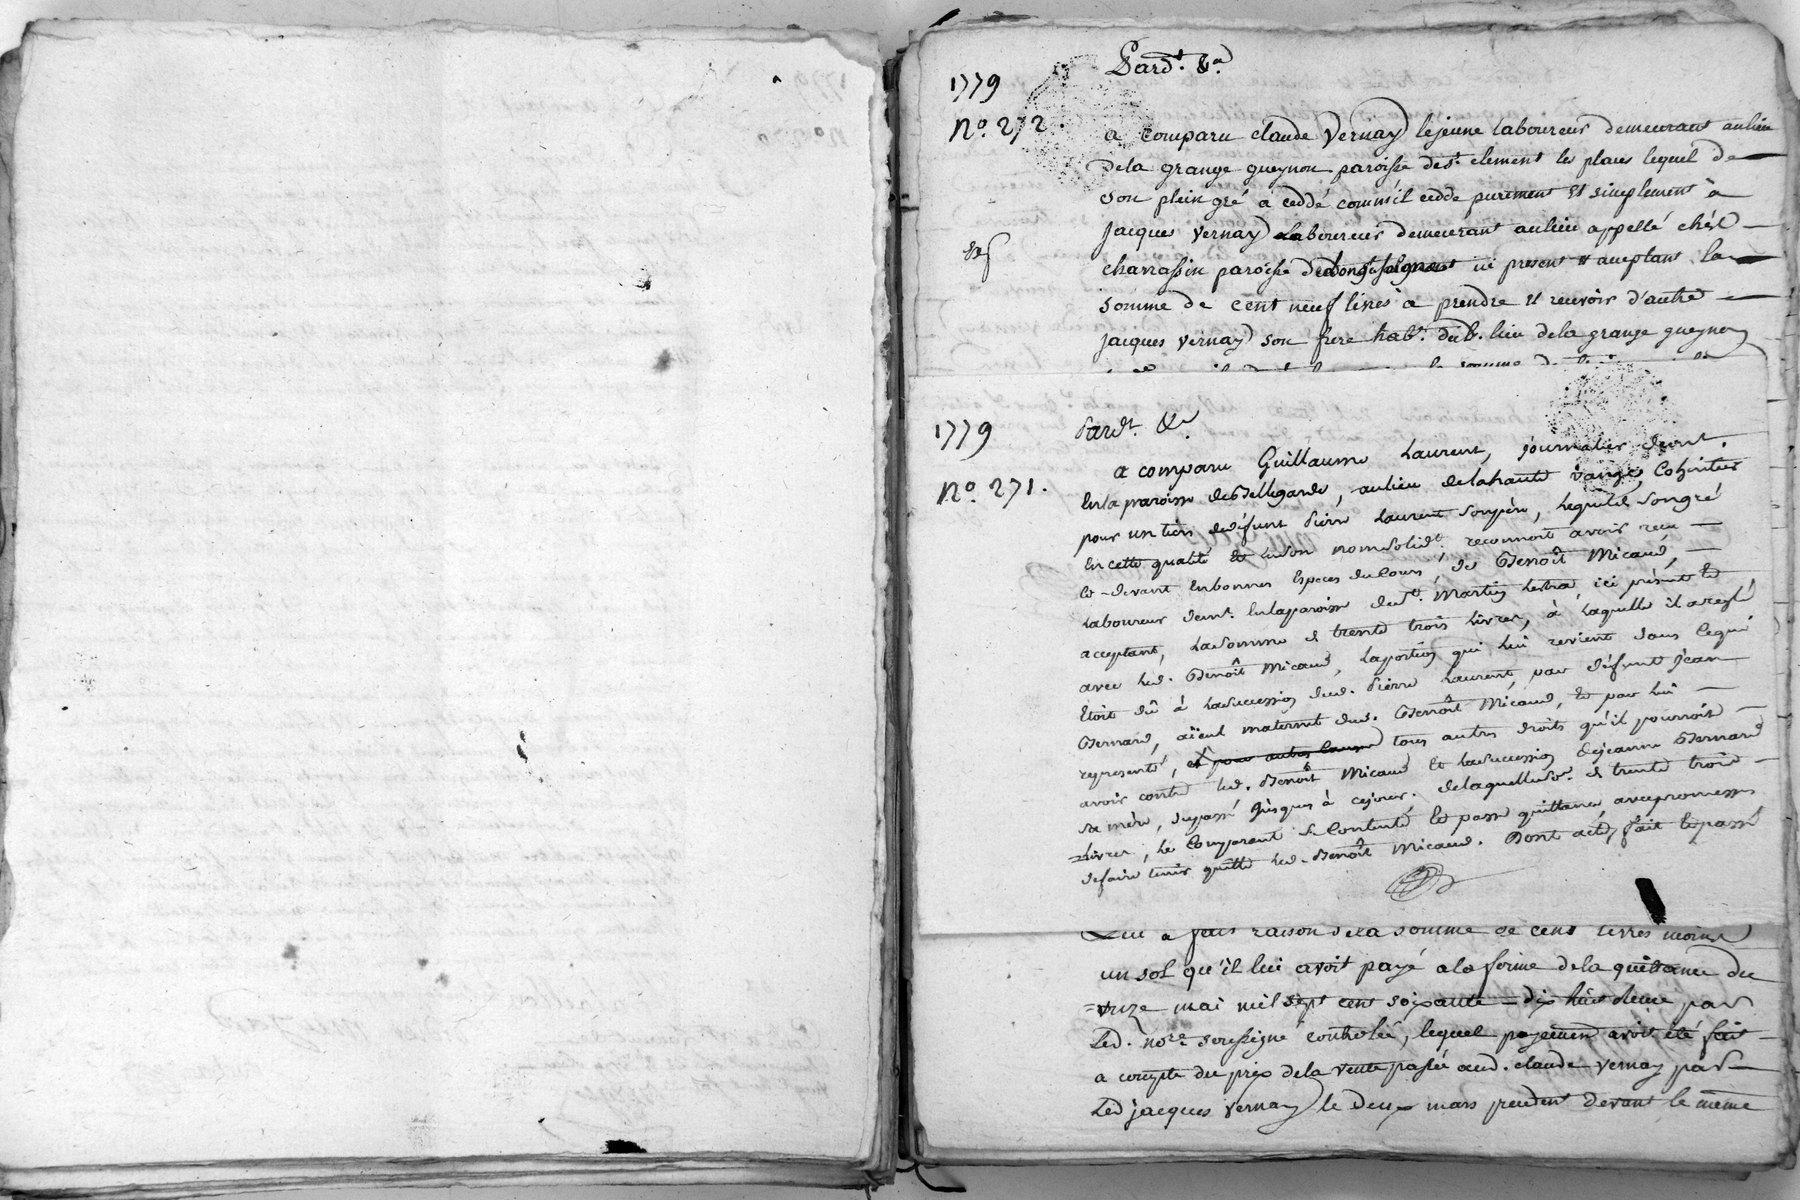 Pardt. &a.
1779
No. 272.
a comparu claude Vernay lejeune laboureur demeurant aulieu
dela grange gueynon paroisse de st. clement les places lequel de
son plein gré a ceddé comm'il cedde purement et simplement à
jacques vernay laboureur demeurant aulieu appellé chés
charrassin paroisse de ici present et acceptant la
somme de cent neuf livres a prendre et recevoir d'autre
jacques vernay son frere habt. dud. lieu dela grange gueynon
1779
No. 271.
Pardt. &a.
a comparu Guillaume Laurent, journalier demt.
En la paroisse de Bellegarde, aulieu delahaute Cohéritier
pour un tiers dedéfunt Pierre Laurent sonpère, lequel de songré
En cette qualité et En son nom solidt. reconnoit avoir recu
ci-devant En bonnes Especes du Cours, de Benoît Micaud,
Laboureur demt. En la paroisse de St. Martin Lestra, ici présent et
acceptant, la somme de trente trois Livres, à laquelle il a reglé
avec led. Benoît Micaud, la portion qui lui revient dans ce qui
Etoit dû à la succession dud. Pierre Laurent, par défunt jean
Bernard, aïeul maternel dud. Benoît Micaud, et par lui
representé, et pour autres causes tous autres droits qu'il pourroit
avoir contre led. Benoît Micaud Et la succession de jeanne Bernard
sa mère, du passé jusques à ce jour. de laquelle so. de trente trois
Livres, le Comparant se Contente et passe quittance, avec promesse
de faire tenir quitte led. Benoît Micaud. Dont acte, fait Et passé
Lui a fait raison dela somme de cent livres moins
un sol qu'il lui avoit payé a la forme de la quittance du
onze mai mil sept cent soixante-dix huit reçue par
Led. nore. soussigné controlée, lequel payement avoit été fait
a compte du prix dela vente passée aud. claude vernay par
Led jacques vernay le deux mars precedent devant le même